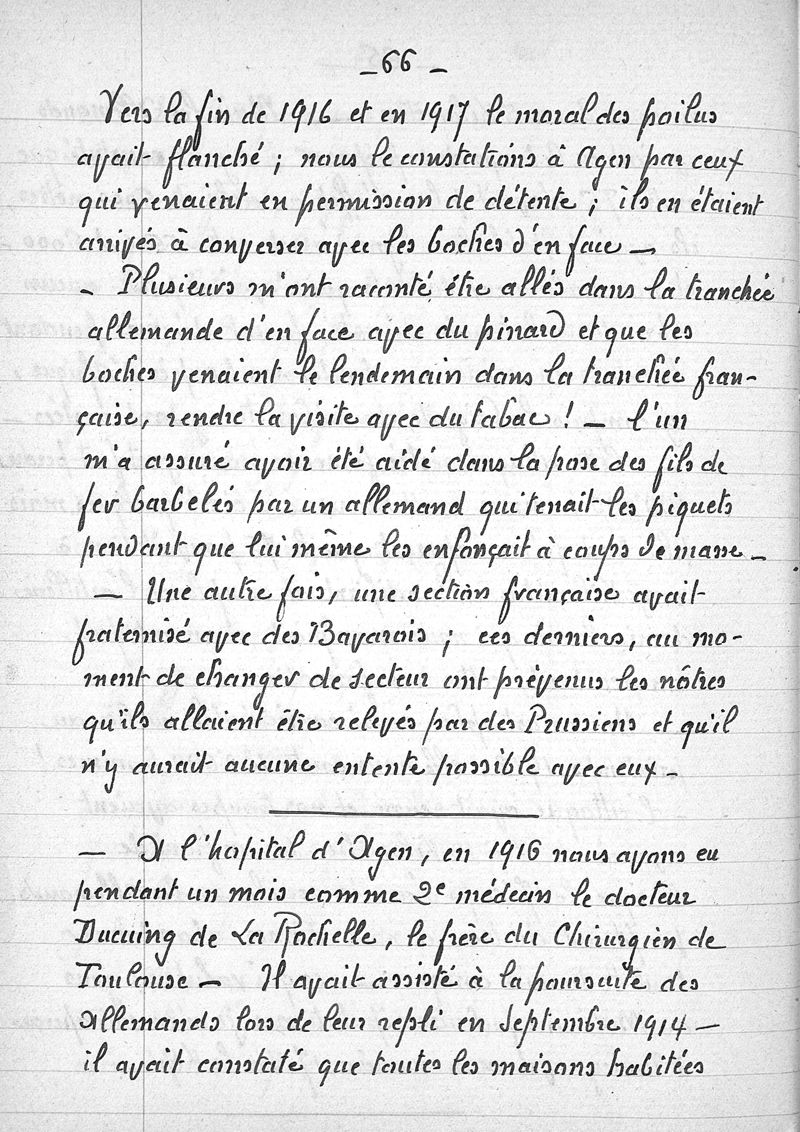 _ 66 _
Vers la fin de 1916 et en 1917 le moral des poilus
avait flanché ; nous le constations à Agen par ceux
qui venaient en permission de détente ; ils en étaient
arrivés à converser avec les boches d'en face —
- Plusieurs m'ont raconté être allés dans la tranchée
allemande d'en face avec du pinard et que les
boches venaient le lendemain dans la tranchée fran-
çaise, rendre la visite avec du tabac ! — l'un
m'a assuré avoir été aidé dans la pose des fils de
fer barbelés par un allemand qui tenait les piquets
pendant que lui même les enfonçait à coups de masse —
— Une autre fois, une section française avait
fraternisé avec des Bavarois ; ces derniers, au mo-
ment de changer de secteur ont prévenus les nôtres
qu'ils allaient être relevés par des Prussiens et qu'il
n'y aurait aucune entente possible avec eux —
— A l'hopital d'Agen, en 1916 nous avons eu
pendant un mois comme 2e médecin le docteur
Ducuing de La Rochelle, le frère du Chirurgien de
Toulouse — Il avait assisté à la poursuite des
Allemands lors de leur repli en Septembre 1914 —
il avait constaté que toutes les maisons habitées